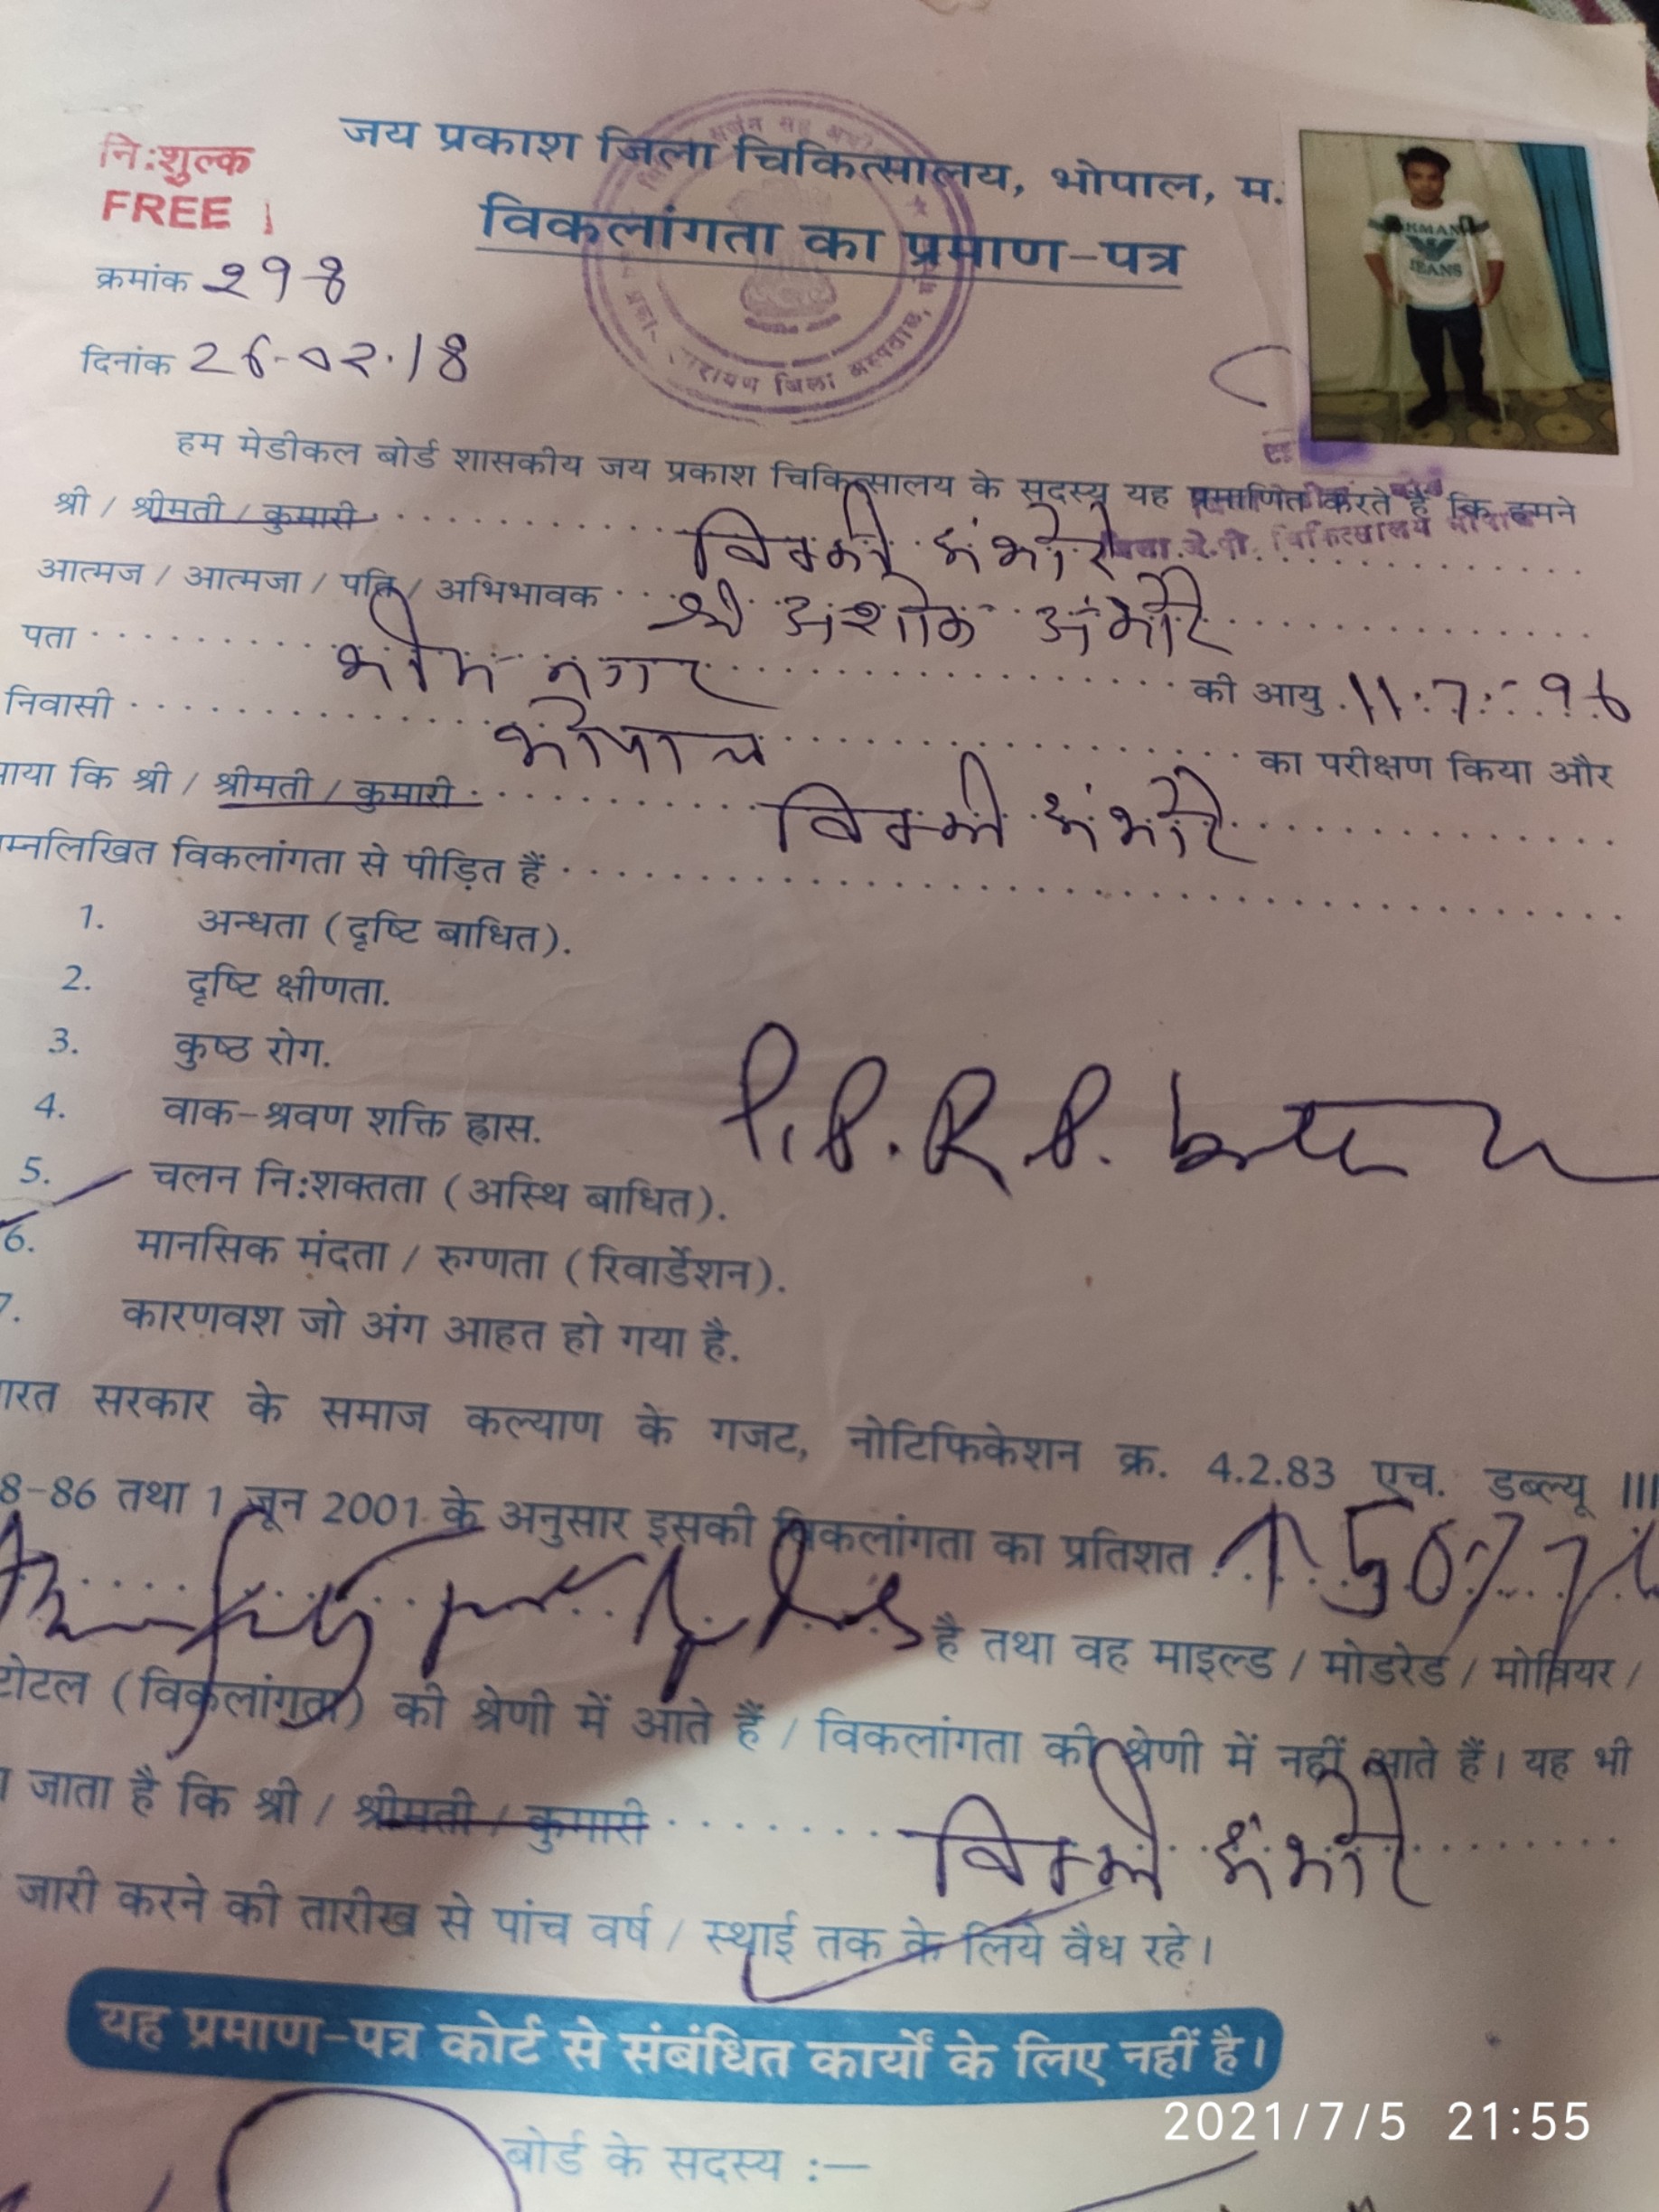 नि:शुल्क
FREE
जय प्रकाश जिला चिकित्सालय, भोपाल, म.
विकलांगता का प्रमाण-पत्र
क्रमांक 298
दिनांक 26-02-18
हम मेडीकल बोर्ड शासकीय जय प्रकाश चिकित्सालय के सदस्य यह प्रमाणित करते हैं कि हमने
श्री / श्रीमती / कुमारी विक्की अंभोरे
आत्मज / आत्मजा / पति / अभिभावक श्री अशोक अंभोरे
पता भीम नगर की आयु 11.7.96
निवासी भोपाल का परीक्षण किया और
पाया कि श्री / श्रीमती / कुमारी विक्की अंभोरे
म्नलिखित विकलांगता से पीड़ित हैं
1. अन्धता (दृष्टि बाधित).
2. दृष्टि क्षीणता.
3. कुष्ठ रोग.
4. वाक-श्रवण शक्ति ह्रास.
P.P.R.P.
5. चलन नि:शक्तता (अस्थि बाधित).
6. मानसिक मंदता / रुग्णता (रिवार्डेशन).
7. कारणवश जो अंग आहत हो गया है.
ारत सरकार के समाज कल्याण के गजट, नोटिफिकेशन क्र. 4.2.83 एच. डब्ल्यू III
8-86 तथा 1 जून 2001 के अनुसार इसकी विकलांगता का प्रतिशत 50%
है तथा वह माइल्ड / मोडरेड / मोवियर /
टोटल (विकलांगता) की श्रेणी में आते हैं / विकलांगता की श्रेणी में नहीं आते हैं। यह भी
जाता है कि श्री / श्रीमती / कुमारी विक्की अंभोरे
जारी करने की तारीख से पांच वर्ष / स्थाई तक के लिये वैध रहे।
यह प्रमाण-पत्र कोर्ट से संबंधित कार्यों के लिए नहीं है।
2021/7/5 21:55
बोर्ड के सदस्य :—